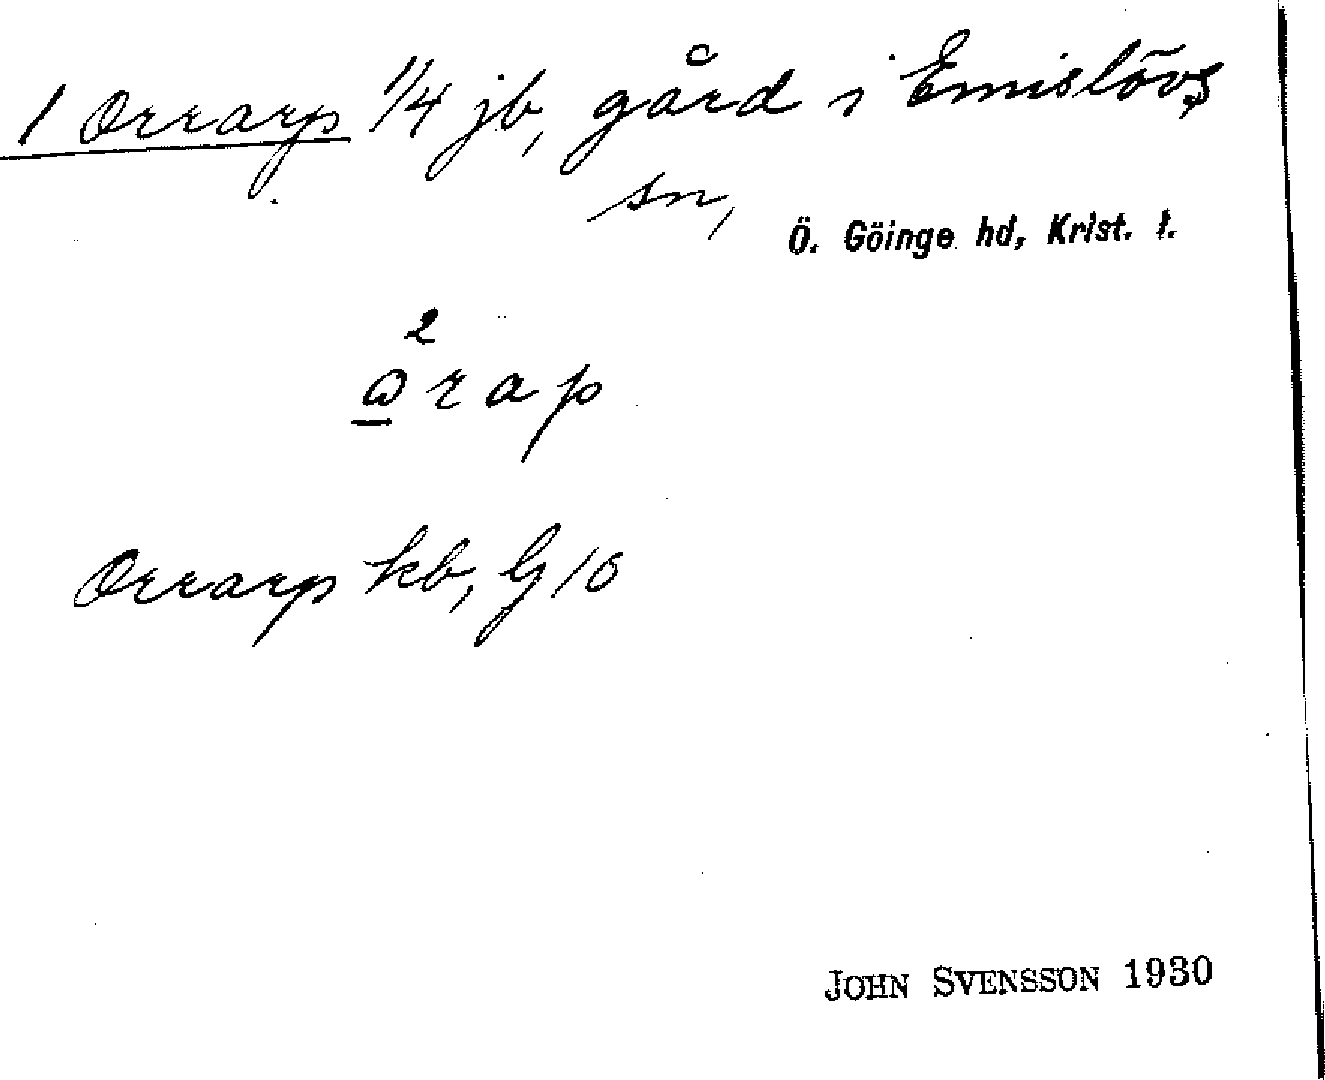 1 Orrarp 1/4 jb, gård i Emislövs
sn,
Ö. Göinge hd, Krist. l.
2
a̲rap
Orrarp kb, G 10
JOHN SVENSSON 1930